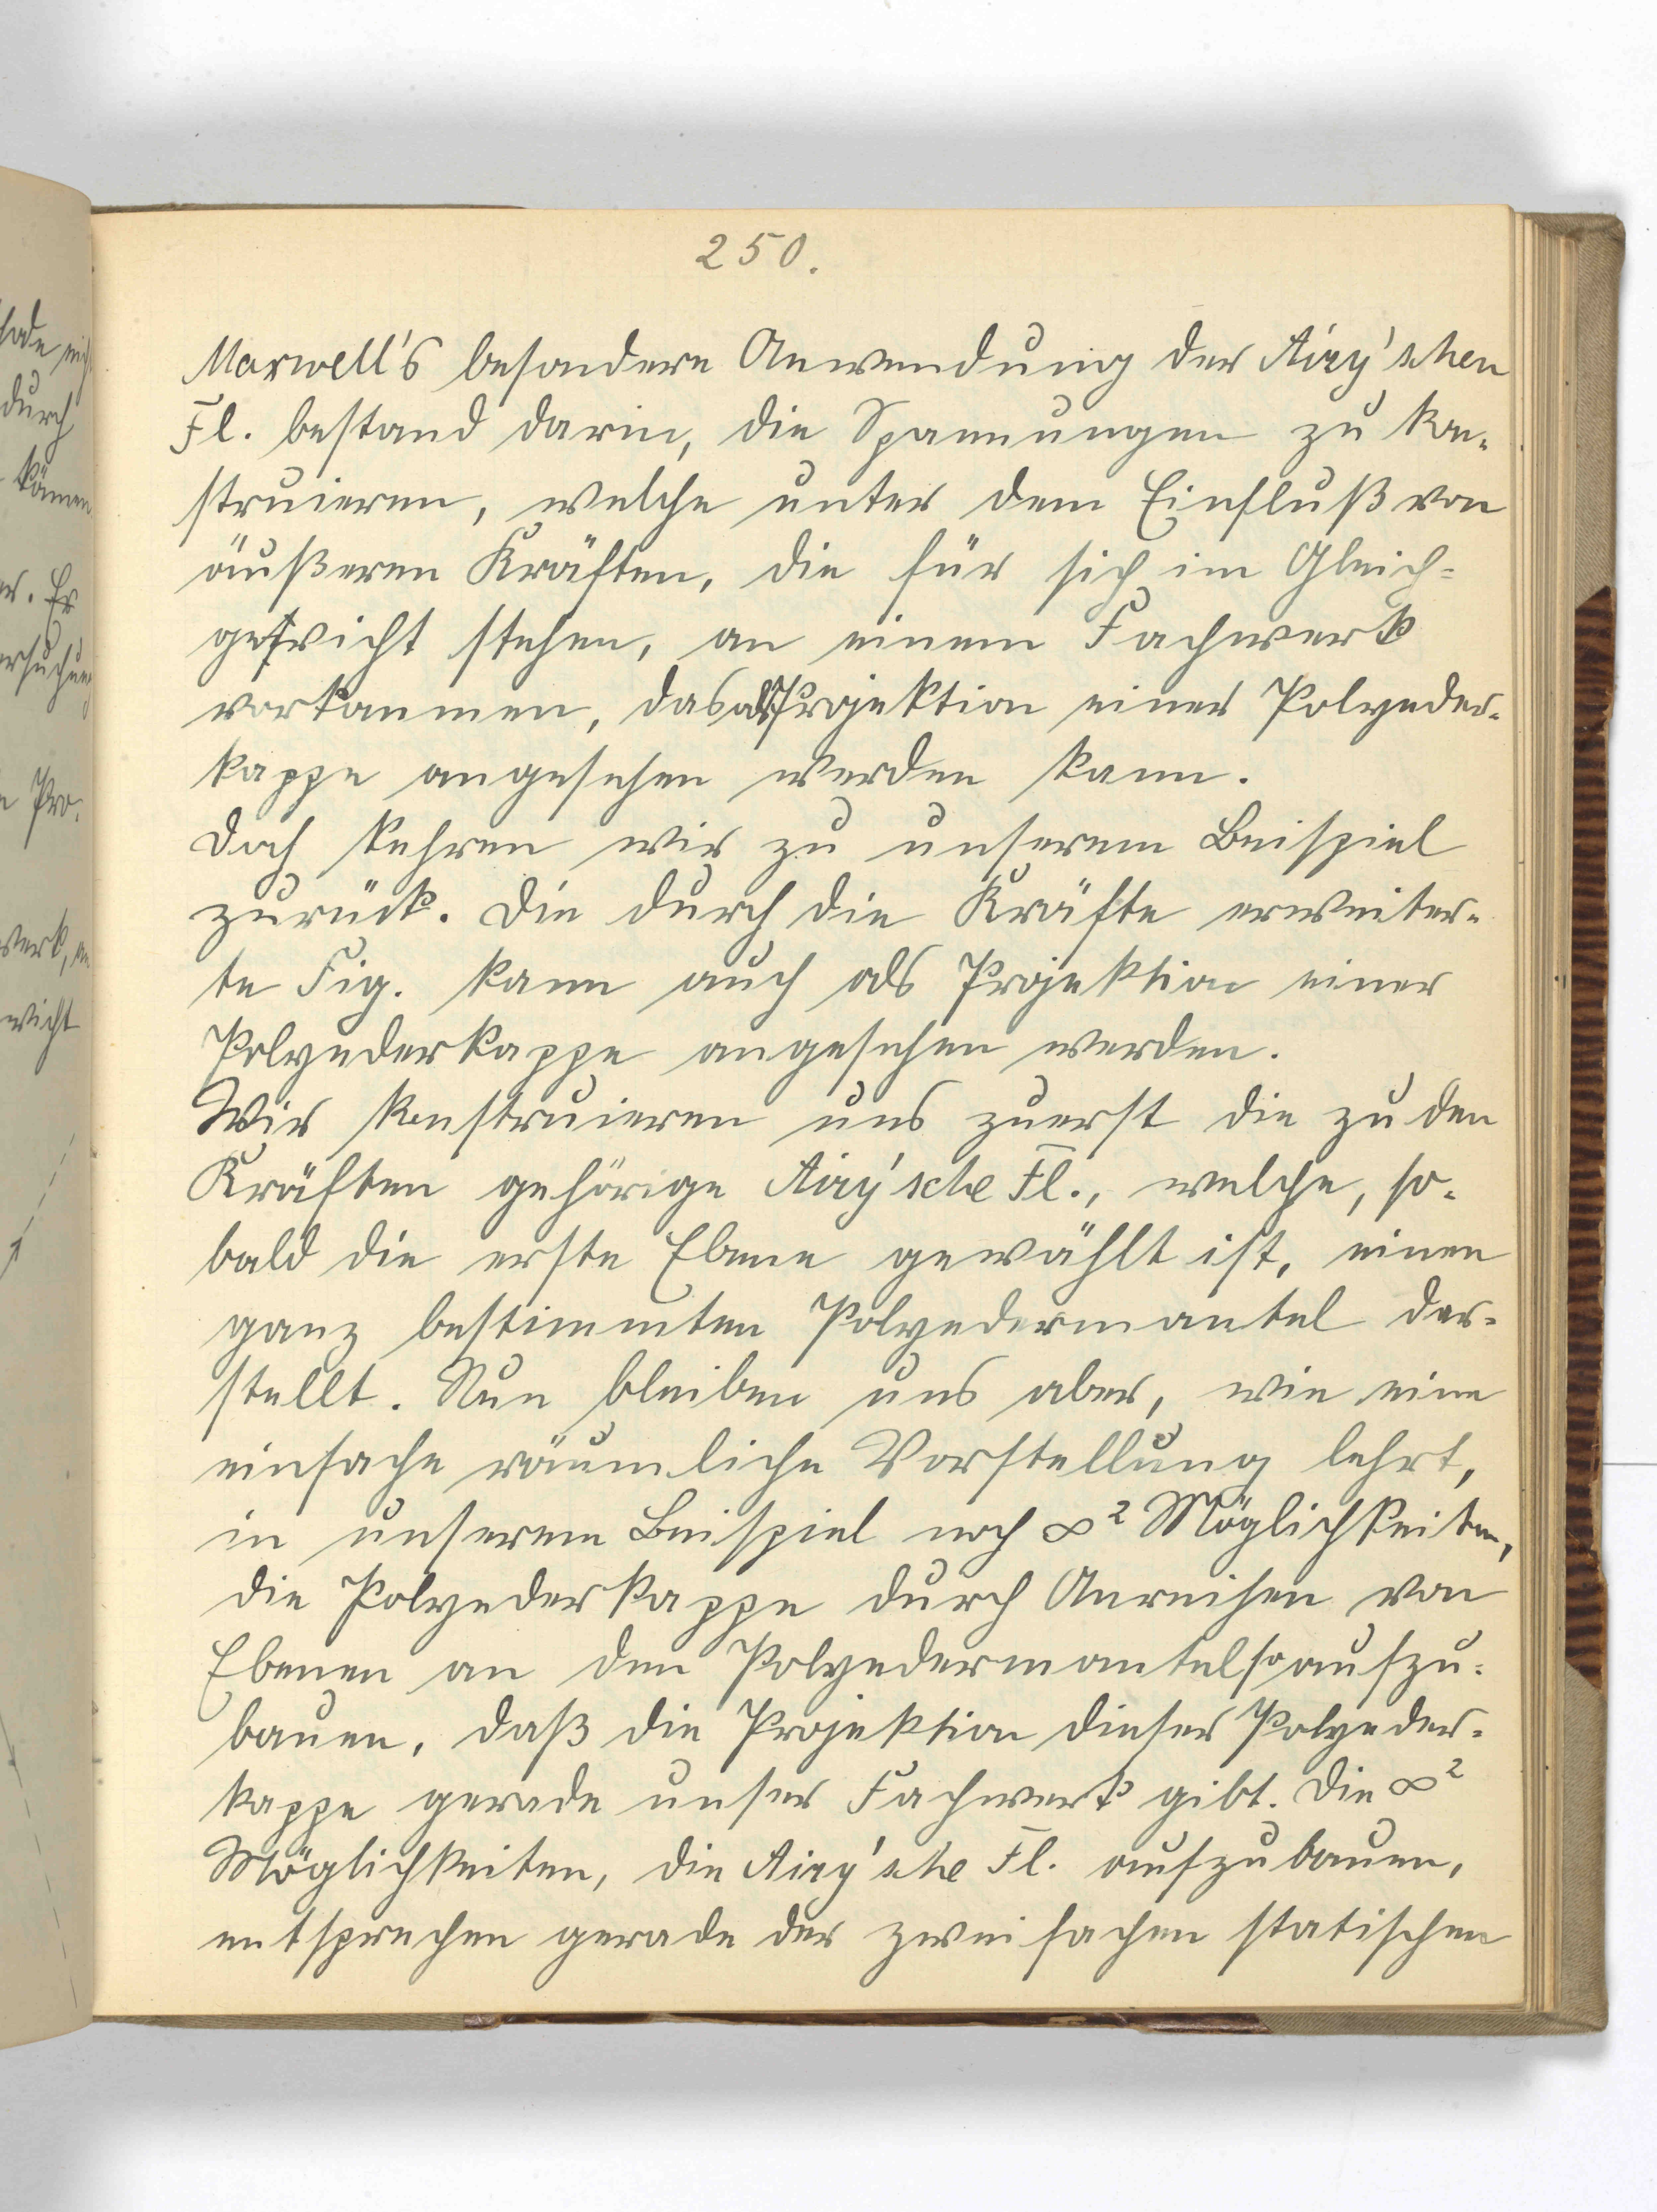 250.
Maxwell's besondere Anwendung der Airy'schen
Fl. bestand darin, die Spannungen zu kon-
struieren, welche unter dem Einfluß von
äußeren Kräften, die für sich im Gleich-
gewicht stehen, an einem Fachwerk
vorkommen, das als Projektion einer Polyeder-
kappe angesehen werden kann.
Doch kehren wir zu unserem Beispiel
zurück. Die durch die Kräfte erweiter-
te Fig. kann auch als Projektion einer
Polyederkappe angesehen werden.
Wir konstruieren uns zuerst die zu den
Kräften gehörige Airy'sche Fl., welche, so-
bald die erste Ebene gewählt ist, einen
ganz bestimmten Polyedermantel dar-
stellt. Nun bleiben uns aber, wie eine
einfache räumliche Vorstellung lehrt,
in unserem Beispiel noch ∞² Möglichkeiten,
die Polyederkappe durch Anreihen von
Ebenen an den Polyedermantel so aufzu-
bauen, daß die Projektion dieser Polyeder-
kappe gerade unser Fachwerk gibt. Die ∞²
Möglichkeiten, die Airy'sche Fl. aufzubauen,
entsprechen gerade der zweifachen statischen